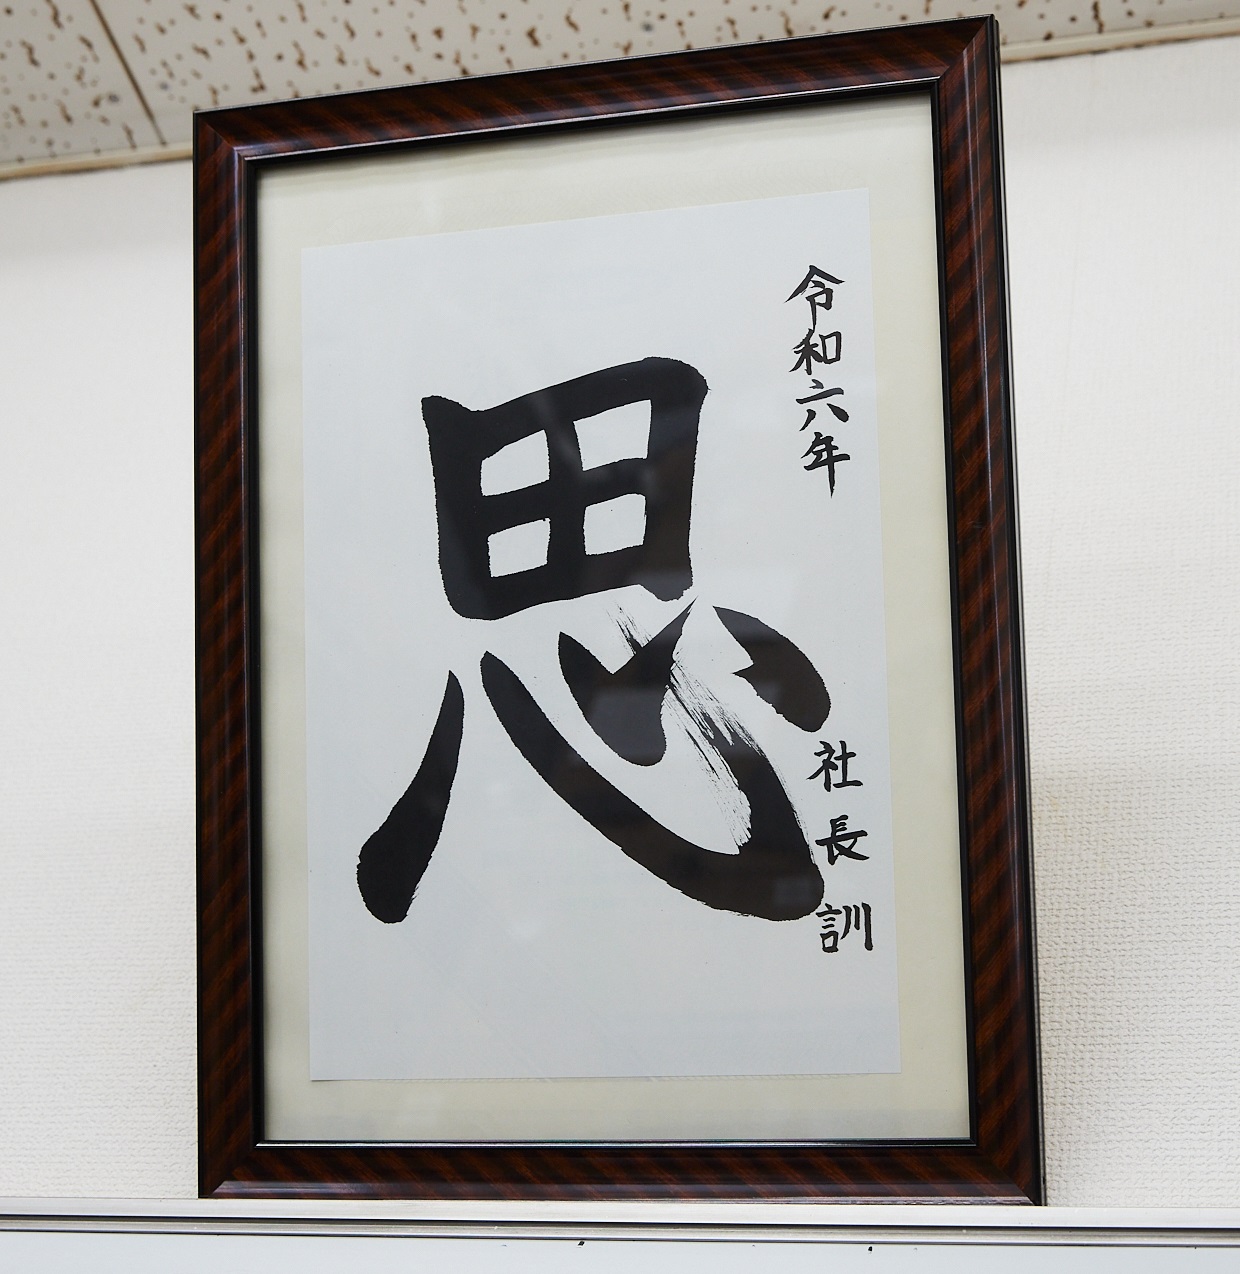 令和六年
社長訓
思